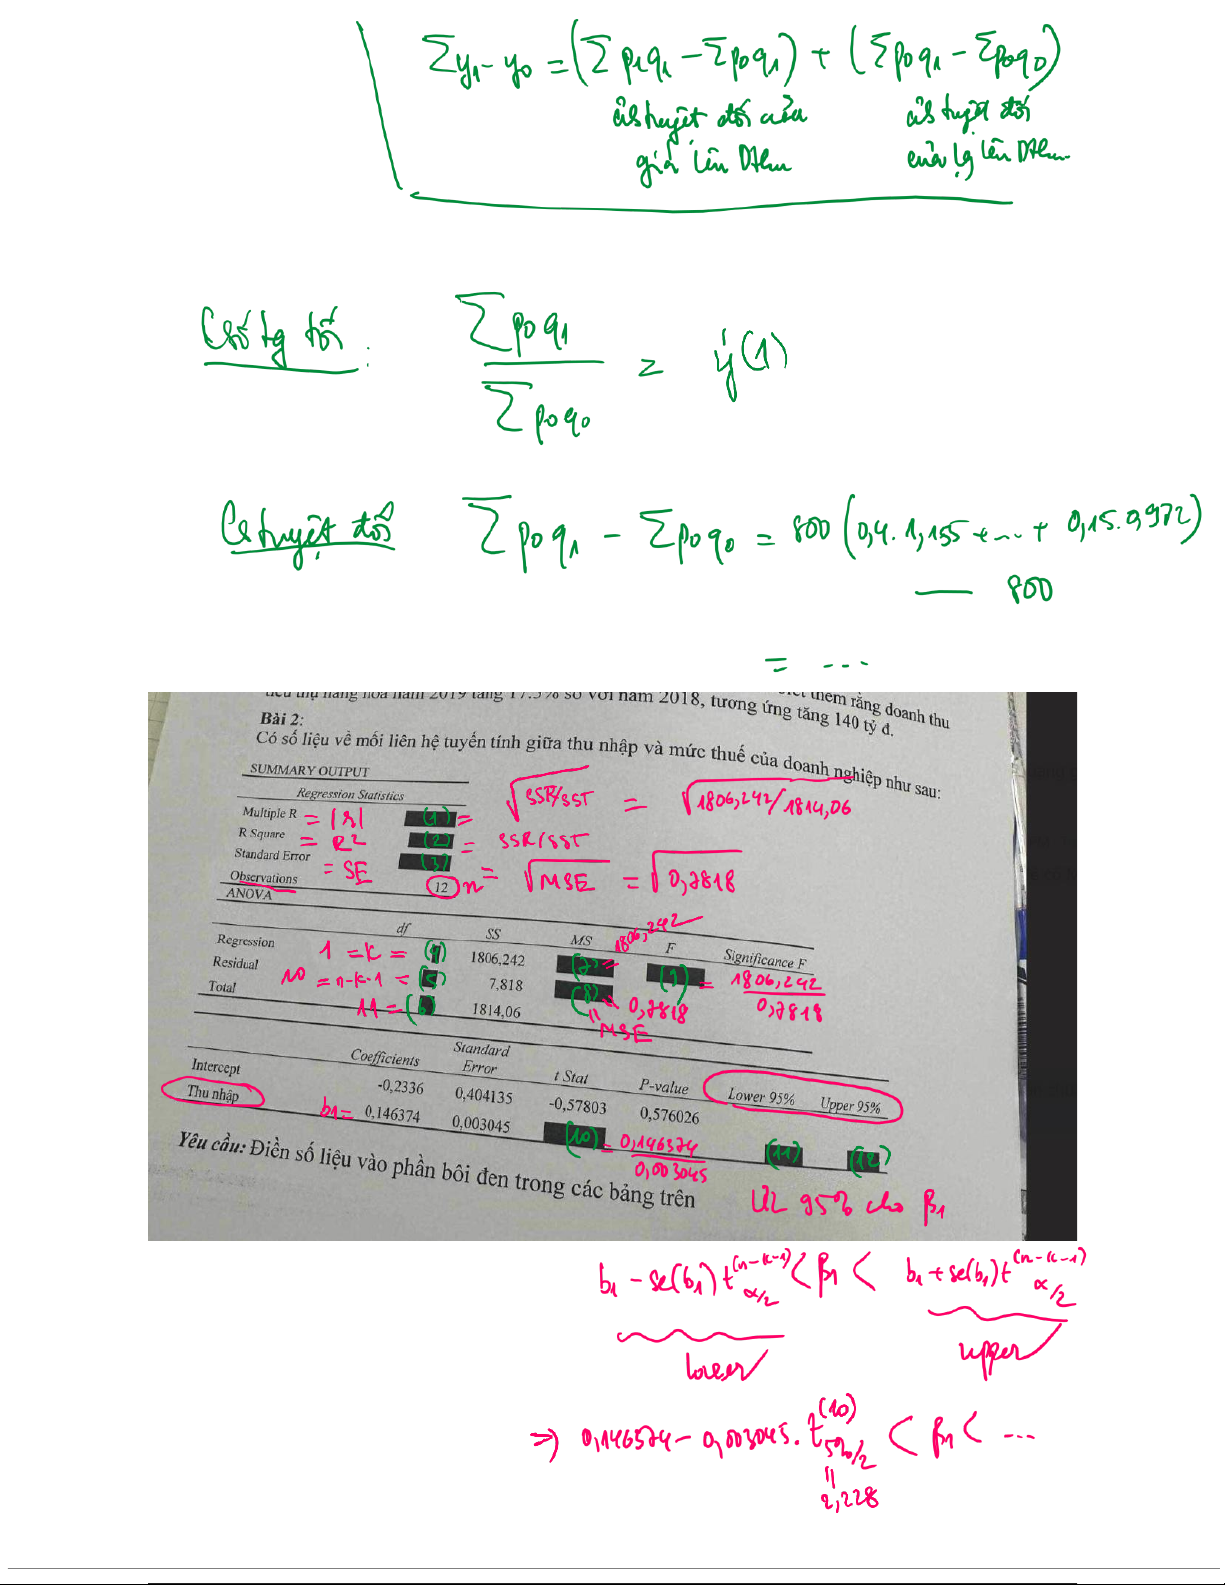 Σy₁ - y₀ = (Σp₁q₁ - Σp₀q₁) + (Σp₀q₁ - Σp₀q₀)
tuyệt đối của tuyệt đối
giá lên Dthu của lg lên Dthu
Cs tg đối : Σp₀q₁ / Σp₀q₀ = ẏ(1)
Cs tuyệt đối Σp₀q₁ - Σp₀q₀ = 800 (0,4. 1,155 + ... + 0,15. 0,972)
— 800
= ...
tiêu thụ hàng hóa năm 2019 tăng 17.5% so với năm 2018, tương ứng tăng 140 tỷ đ.
biết thêm rằng doanh thu
Bài 2:
Có số liệu về mối liên hệ tuyến tính giữa thu nhập và mức thuế của doanh nghiệp như sau:
SUMMARY OUTPUT
Regression Statistics
Multiple R = |r| (1) = √SSR/SST = √1806,242/1814,06
R Square = R² (2) = SSR/SST
Standard Error = SE (3) = √MSE = √0,7818
Observations 12 n
ANOVA
df SS MS F Significance F
Regression 1 = k = (4) 1806,242 (7) = 1806,242 (9) = 1806,242 / 0,7818
Residual 10 = n-k-1 = (5) 7,818 (8) = 0,7818
Total 11 = (6) 1814,06 = MSE
Coefficients Standard Error t Stat P-value Lower 95% Upper 95%
Intercept -0,2336 0,404135 -0,57803 0,576026
Thu nhập b₁ = 0,146374 0,003045 (10) = 0,146374 / 0,003045 (11) (12)
Yêu cầu: Điền số liệu vào phần bôi đen trong các bảng trên
ƯL 95% cho β₁
b₁ - se(b₁) t^(n-k-1)_α/2 < β₁ < b₁ + se(b₁) t^(n-k-1)_α/2
lower upper
⇒ 0,146374 - 0,003045. t^(10)_5%/2 < β₁ < ...
= 2,228